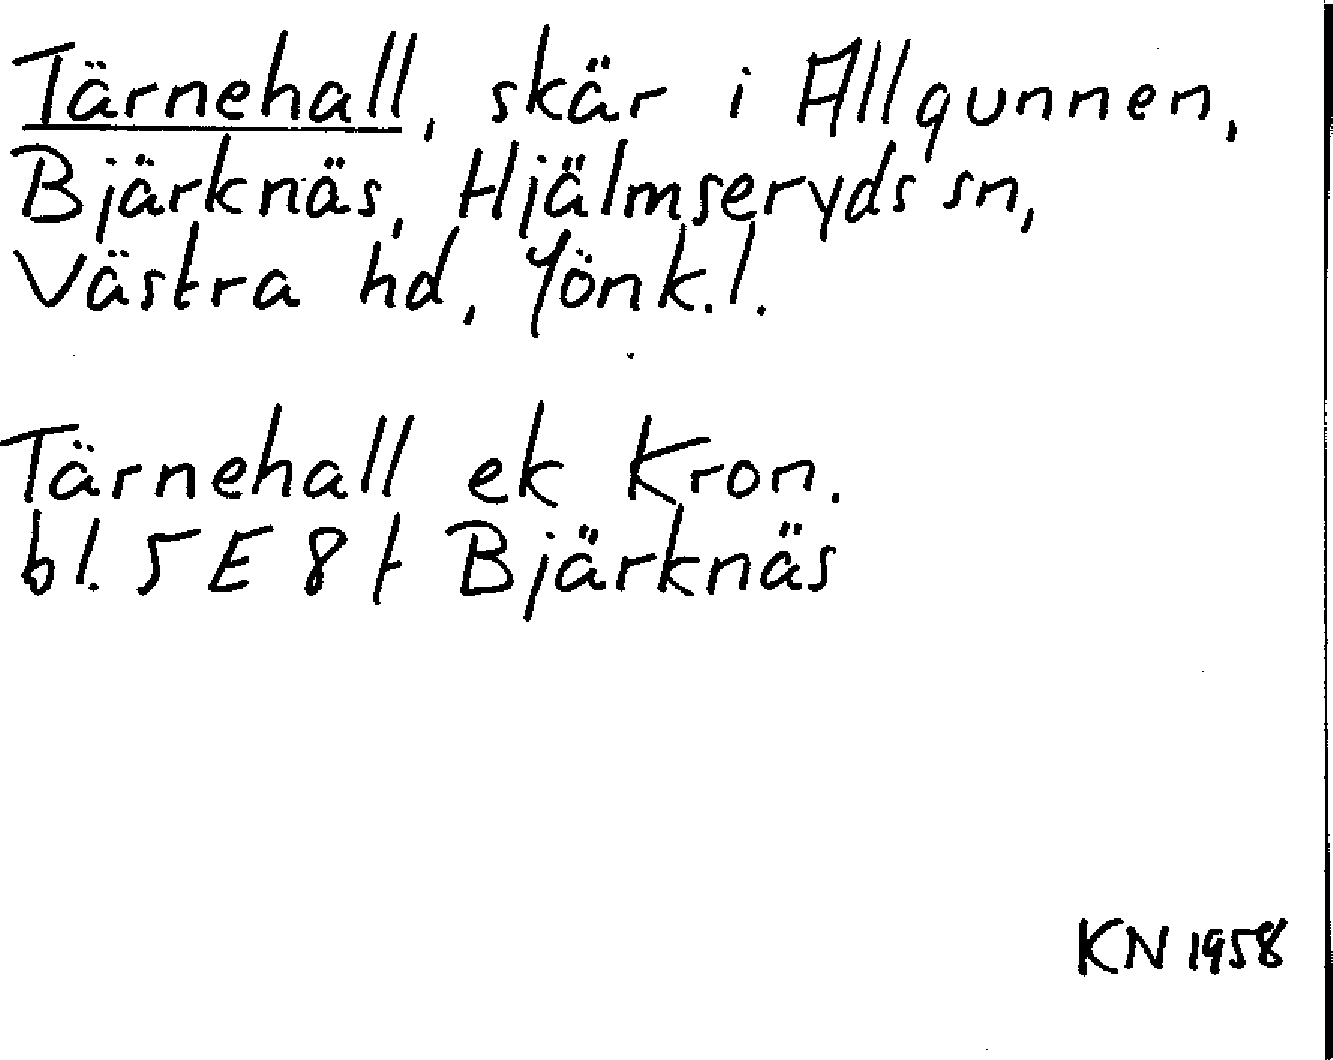 Tärnehall, skär i Allgunnen,
Bjärknäs, Hjälmseryds sn,
Västra hd, Jönk.l.
Tärnehall ek Kron.
bl. 5 E 8 f Bjärknäs
KN 1958